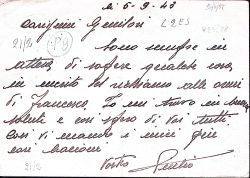 li 5-9-43
Carissimi Genitori
Sono sempre in
attesa di sapere qualche cosa,
in merito del richiamo alle armi
di Francesco. Io mi trovo in buona
salute e così spero di voi tutti.
Con vi mando i miei più
cari bacioni
Vostro
21/2